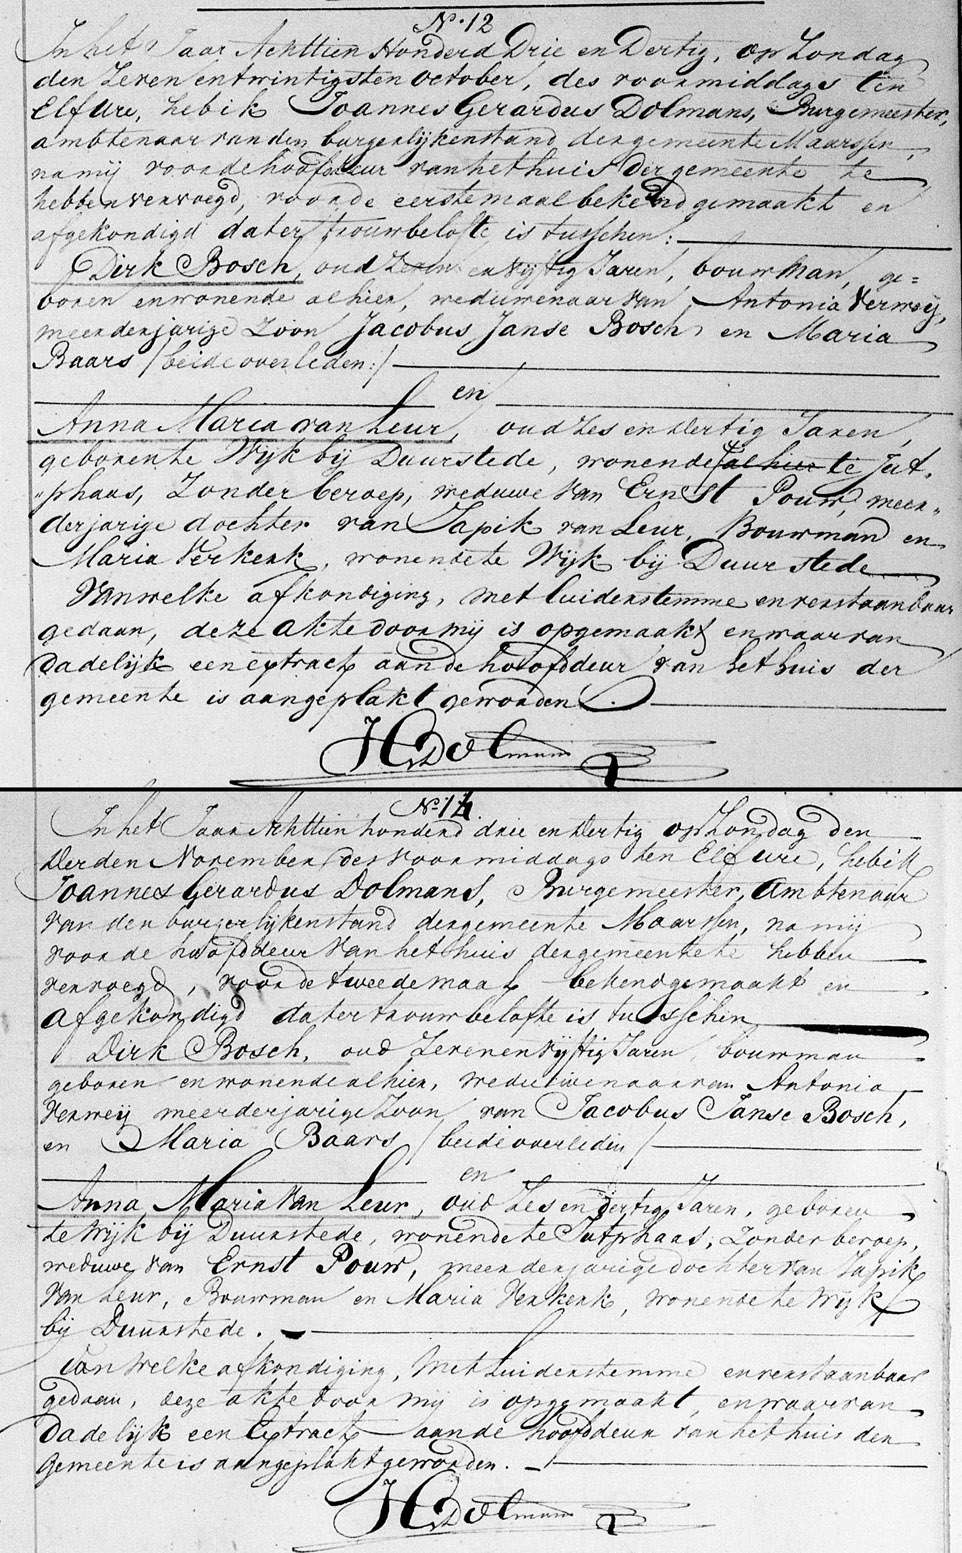 N.o 12
In het Jaar Achttien Honderd Drie en Dertig, op Zondag
den Zeven en twintigsten october, des voormiddags ten
Elf Ure, heb ik Joannes Gerardus Dolmans, Burgemeester,
ambtenaar van den burgerlijken stand der gemeente Maarssen,
na mij voor de hoofddeur van het huis der gemeente te
hebben vervoegd, voor de eerste maal bekend gemaakt en
afgekondigd dat er trouwbelofte is tusschen:
Dirk Bosch, oud Zeven en vijftig Jaren, bouwman, ge=
boren en wonende alhier, weduwenaar van Antonia Verweij,
meerderjarige Zoon Jacobus Janse Bosch, en Maria
Baars /beide overleden:/
en
Anna Maria van Leur, oud Zes en dertig Jaren,
geboren te Wijk bij Duurstede, wonende alhier te Jut-
phaas, Zonder beroep, weduwe van Ernst Pouw, meer„
derjarige dochter van Japik van Leur, Bouwman en
Maria Verkerk, wonende te Wijk bij Duurstede
Van welke afkondiging, met luider stemme en verstaanbaar
gedaan, deze akte door mij is opgemaakt en waarvan
dadelijk een extract aan de hoofddeur van het huis der
gemeente is aangeplakt geworden.
JGDolmans
N.o 14.
In het Jaar Achttien honderd drie en dertig op Zondag den
derden November des voormiddags ten Elf ure, heb ik
Joannes Gerardus Dolmans, Burgemeester, Ambtenaar
van den burgerlijken stand der gemeente Maarssen, na mij
voor de hoofddeur van het huis der gemeente te hebben
vervoegd, voor de tweede maal bekend gemaakt en
afgekondigd dat er trouwbelofte is tusschen
Dirk Bosch, oud Zeven en vijftig Jaren, bouwman
geboren en wonende alhier, weduwenaar van Antonia
Verweij meerderjarige Zoon van Jacobus Janse Bosch,
en Maria Baars /beide overleden/
en
Anna Maria van Leur, oud Zes en dertig Jaren, geboren
te Wijk bij Duurstede, wonende te Jutphaas, Zonder beroep,
weduwe van Ernst Pouw, meerderjarige dochter van Japik
van Leur, Bouwman en Maria Verkerk, wonende te Wijk
bij Duurstede.
Van welke afkondiging, met Luider stemme en verstaanbaar
gedaan, deze akte door mij is opgemaakt, en waarvan
dadelijk een Extract aan de hoofddeur van het huis der
Gemeente is aangeplakt geworden.
JGDolmans